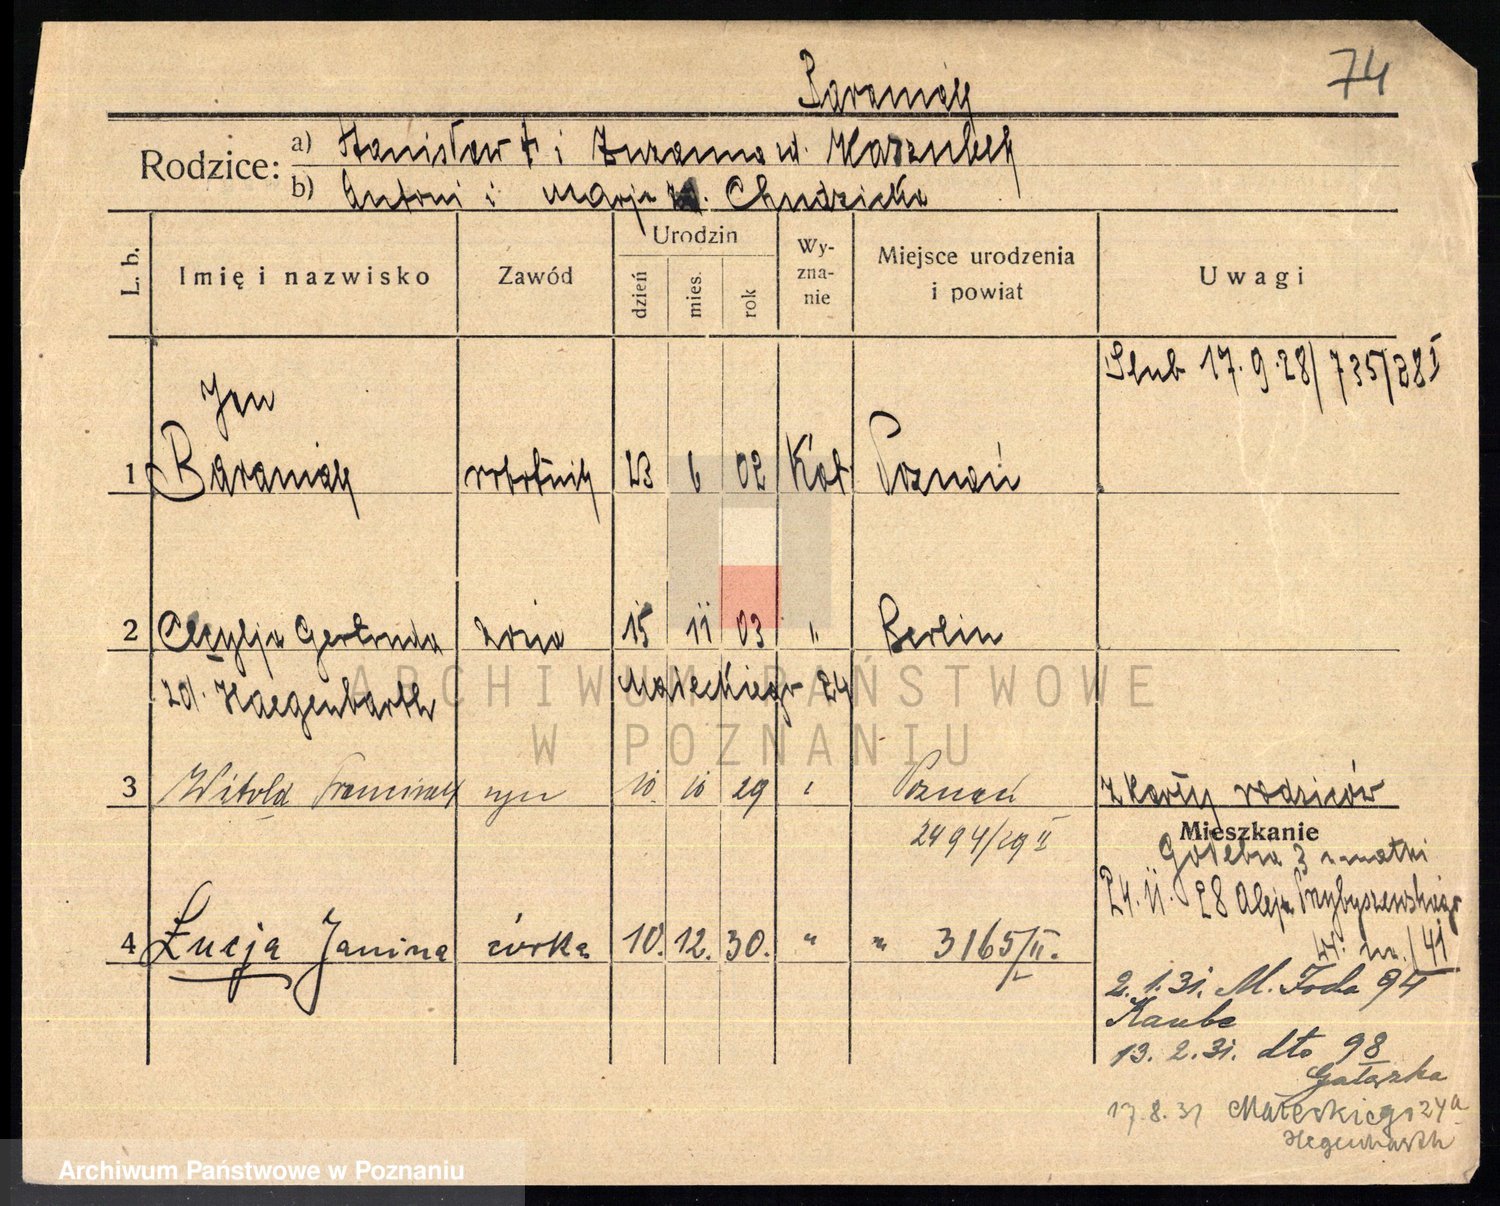 74
Baraniak
Rodzice:
a) Stanisław † i Zuzanna ur. Kaszubek
b) Antoni i Marja zd. Chudzicka
L. b.
Imię i nazwisko
Zawód
Urodzin
dzień
mies.
rok
Wy-
zna-
nie
Miejsce urodzenia
i powiat
Uwagi
Ślub 17.9.28/735/28 I
Jan
1 Baraniak robotnik 23 6 02 Kat Poznań
2 Cecylja Gertruda żona 15 11 03 " Berlin
zd. Haegenbarth Małeckiego 24
3 Witold Franciszek syn 10 10 29 " Poznań
2494/29 II
z karty rodziców
Mieszkanie
Gołębia 3 u matki
24.11.28 Aleja Przybyszewskiego
41
4 Łucja Janina córka 10. 12. 30. " " 3165/II.
2.1.31. M. Focha 94
Kaube
13.2.31. dto 98
Gałązka
17.8.31 Małeckiego 24a
Hegenbarth
ARCHIWUM PAŃSTWOWE
W POZNANIU
Archiwum Państwowe w Poznaniu